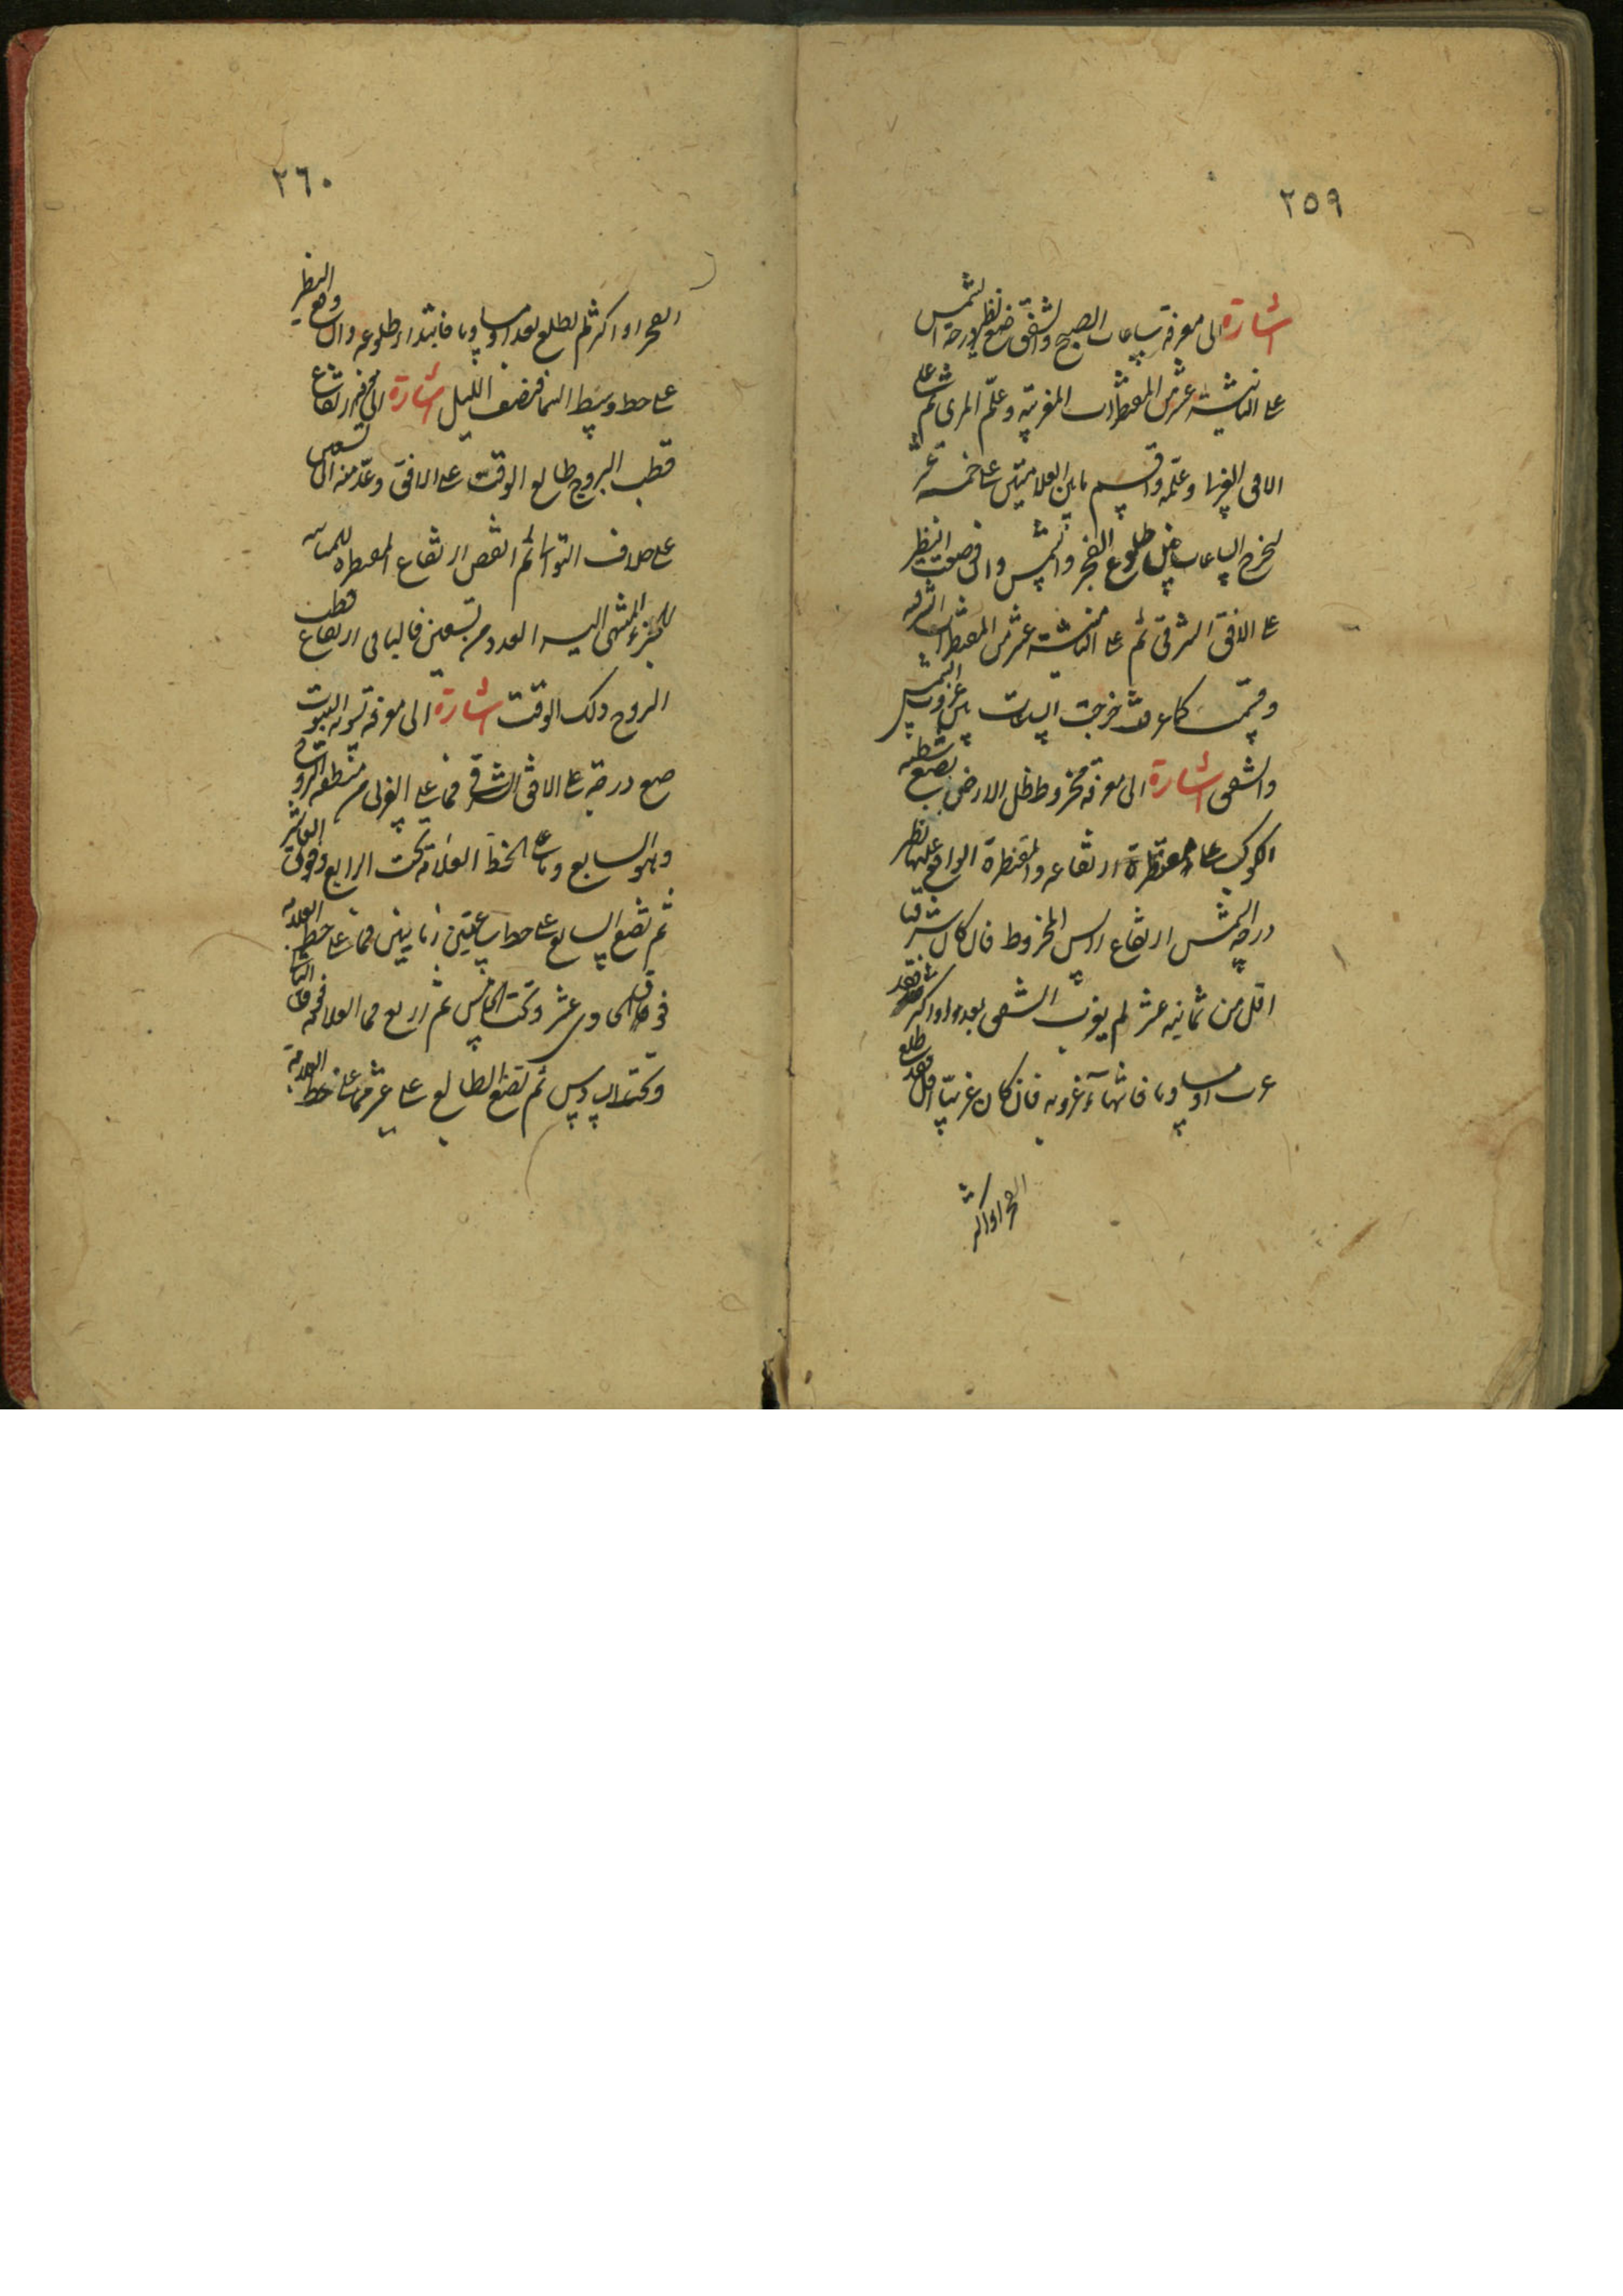 ٢٥٩
اشارة الى معرفة ساعات الصبح والشفق ضع نظير درجة الشمس
على الثامنة عشر من المقنطرات المغربية وعلّم المرى ثم على
الافق الغربى وعلّمه واقسم ما بين العلامتين على خمسة عشر
لخرج الساعات قبل طلوع الفجر والشمس وان وضعت النظير
على الافق الشرقى ثم على الثامنة عشر من المقنطرات الشرقيه
وقسمت كما عرفت خرجت الساعات بين غروب الشمس
والشفق اشارة الى معرفة مخروط ظل الارض تضع شظيه
الكوكب على مقنطرة ارتفاعه والمقنطرة الواقع عليها نظير
درجة الشمس ارتفاع راس المخروط فان كان شرقيا
اقل من ثمانيه عشر لم يغرب الشفق بعد او اكثر فقد
غرب او مساويا فانتهاء غروبه فان كان غربيّا اقل فقد طلع
الفجر او اكثر
٢٦٠
الفجر او اكثر لم يطلع بعد او مساويا فابتداء طلوعه وان وقع النظير
على خط وسط السما فنصف الليل اشارة الى معرفة ارتفاع
قطب البروج طالع الوقت على الافق وعدّ منه الى تسعين
على خلاف التوالى ثم انقص ارتفاع المقنطره المماسه
للجزء المنتهى اليه العدد من تسعين فالباقى ارتفاع قطب
البروج ذلك الوقت اشارة الى معرفة تسوية البيوت
ضع درجته على الافق الشرقى فما على الغربى من منطقة البروج
وهو السابع وما على الخط العلاقة تحت الرابع وفوق العاشر
ثم تضع السابع على خط ساعتين زمانيتين فما على خط العلاقه
فوق الحادى عشر وتحت الخامس ثم اربع فما العلاقه فوق الثانى
وتحت السادس ثم تضع الطالع على عشر فما على خط العلاقة